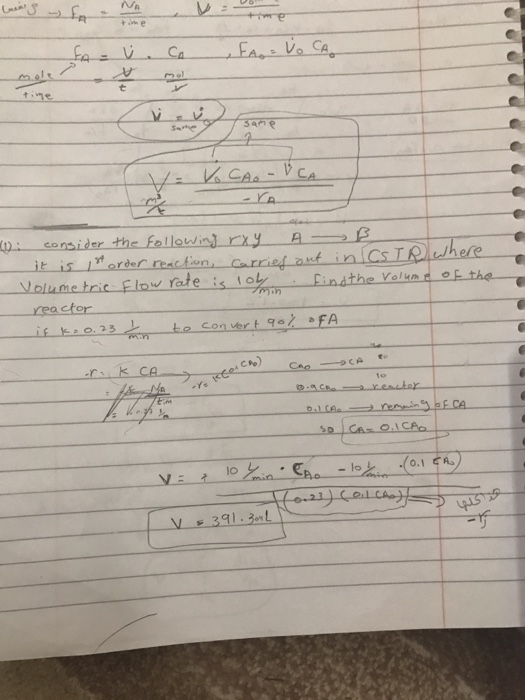 → FA = NA / time , V̇ = / time
FA = V̇ . CA , FA₀ = V̇₀ CA₀
mole / time = V / t mol / V
V̇ = V̇₀
same
same
V = V̇₀ CA₀ - V̇ CA / -rA
(1): consider the following rxy A → B
it is 1st order reaction, carried out in CSTR where
Volumetric flow rate is 10 L/min . find the volume of the
reactor
if k = 0.23 1/min to convert 90% of A
-r = K CA → -r = K(0.1 CA₀) CA₀ → CA
10
0.9 CA₀ → reactor
0.1 CA₀ → remaning of CA
so CA = 0.1 CA₀
V = 10 L/min . CA₀ - 10 L/min . (0.1 CA₀)
(0.23) (0.1 CA₀) ⇒
V = 391.304 L